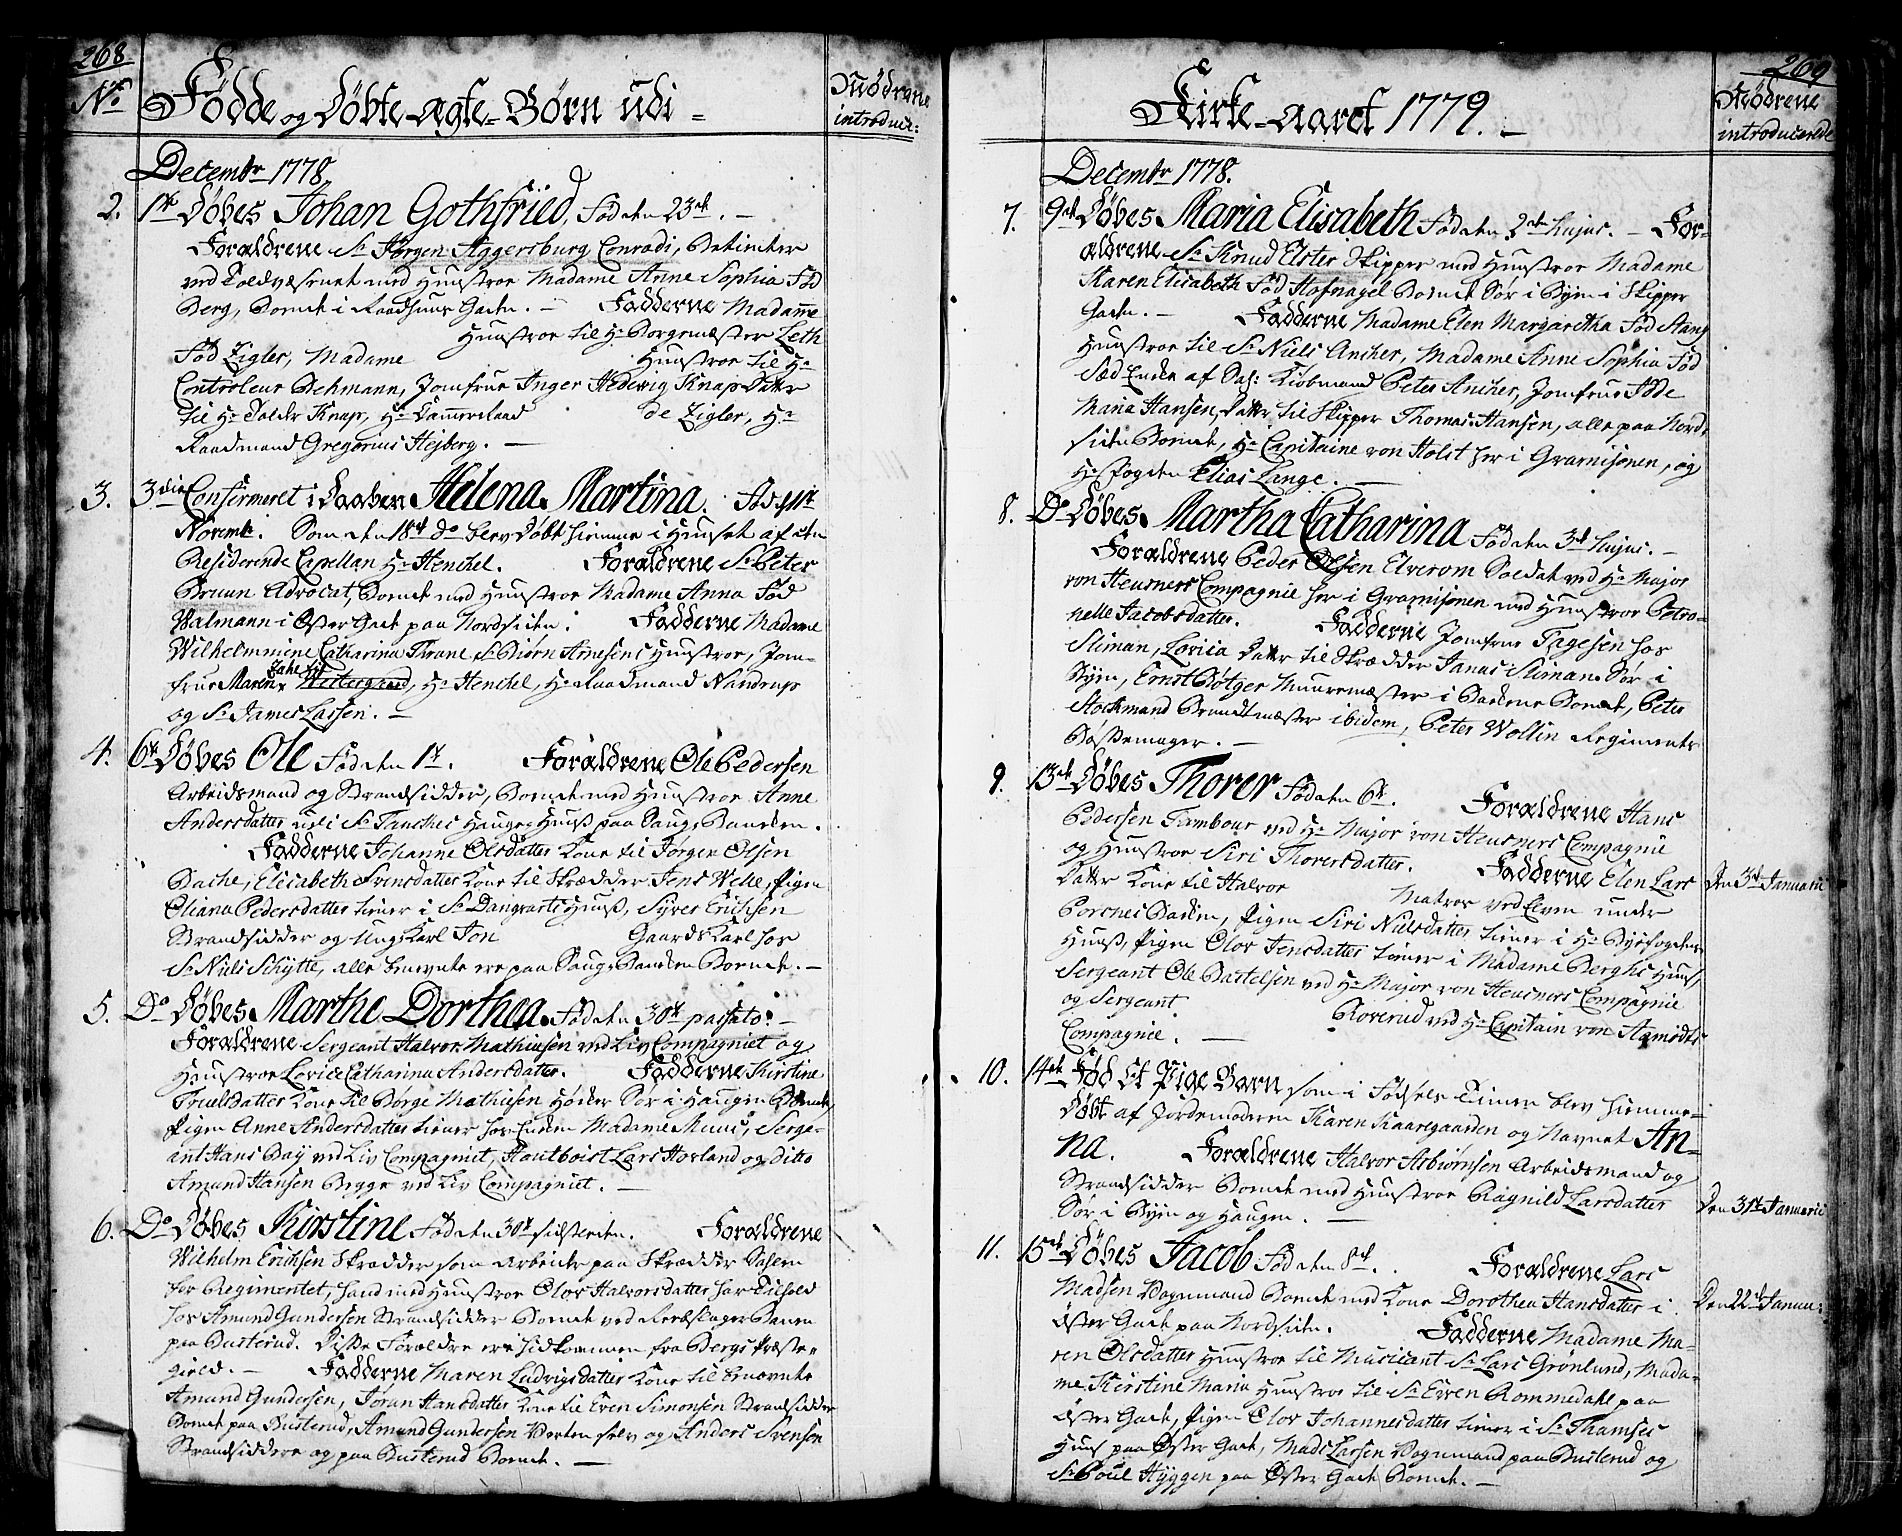 268.
No
Fødde og Døbte ægte-Børn udi =
Mødrene
introduc:
Decembr 1778.
2. 1te Døbes Johan Gothfried, Fød den 23de. –
Forældrene Sr Jørgen Aggersburg Conradi, Betienter
ved Toldvæsenet med Hustroe Madame Anne Sophia Fød
Berg, Boende i Raadhuus Gaden. – Fadderne Madame
Hustroe til Hr Borgemæster Leth
Fød Zigler, Madame Hustroe til Hr
Controleur Behmann, Jomfrue Inger Hedevig Knap Datter
til Hr Tolder Knap, Hr Cammerraad de Zigler, Hr
Raadmand Gregorius Hejberg. –
3. 3die Confirmeret i Daaben Helena Martina. Fød 11te
Novemb. Som den 18de Do blev Døbt hiemme i Huuset af den
Residerende Capellan Hr Henchel. Forældrene Sr Peter
Bruun Advocat, Boende med Hustroe Madame Anna Fød
Walmann i Øster Gade paa Nordsiden. Fadderne Madame
Wilhelmmine Catharina Thrane Sr Biørn Arnesens Hustroe, Jom-
frue Maren Westergaard, Hr Henchel, Hr Raadmand Nandrup
og Sr James Lassen. –
4. 6te Døbes Ole Fød den 1te. Forældrene Ole Pedersen
Arbeidsmand og Strandsidder, Boende med Hustroe Anne
Andersdatter udi Sr Tanches Hauge Huus paa Saug Banken.
Fadderne Johanne Olsdatter Kone til Jørgen Olsen
Bache, Elisabeth Svensdatter Kone til Skrædder Jens Welle, Pigen
Oliana Pedersdatter tiener i Sr Dangvarts Huus, Syver Erichsen
Strandsidder og Ung Karl Jon Gaards Karl hos
Sr Niels Schytte, alle benevnte ere paa Saug Banken Boende. –
5. Do Døbes Marthe Dorthea. Fød den 30te passato. –
Forældrene Sergeant Halvor Mathiesen ved Liv Compagniet og
Hustroe Lovise Catharina Andersdatter. Fadderne Kirstine
Truelsdatter Kone til Børge Mathiesen Høcker Sør i Haugen Boende,
Pigen Anne Andersdatter tiener hos Enken Madame Muus, Serge-
ant Hans Bay ved Liv Compagniet, Hautboist Lars Hovland og ditto
Amund Hansen Brygge ved Liv Compagniet. –
6. Do Døbes Kirstine Fød den 30te sidstleden. Forældrene
Wilhelm Erichsen Skrædder som arbeider paa Skrædder
for Regimentet, hand med Hustroe Olov Halvorsdatter har Tilhold
hos Amund Gundersen Strandsidder Boende ved Rebslager Banen
paa Busterud. Disse Forældre ere hidkommen fra Bergs Præste-
gield. – Fadderne Maren Ludvigsdatter Kone til benevnte
Amund Gundersen, Jøran Hansdatter Kone til Even Simonsen Strandsidder
Boende paa Busterud, Amund Gundersen Verten selv og Anders Svensen
Strandsiddere og paa Busterud Boende. –
269
Kirke-Aaret 1779. –
Mødrene
introducerede
Decembr 1778.
7. 9de Døbes Maria Elisabeth Fød den 2de hujus. – For-
ældrene Sr Knud Elster Skipper med Hustroe Madame
Karen Elisabeth Fød Hofnagel Boende Sør i Byen i Skipper
Gaden. – Fadderne Madame Elen Margaretha Fød Stang
Hustroe til Sr Niels Ancher, Madame Anne Sophia Fød
Sæd Enke af Sal: Kiøbmand Peter Ancher, Jomfrue Føde
Maria Hansen, Datter til Skipper Thomas Hansen, alle paa Nord-
siden Boende, Hr Capitaine von Holst her i Gvarnisonen, og
Hr Fogden Elias Lange. –
8. Do Døbes Martha Catharina Fød den 3de hujus. –
Forældrene Peder Olsen Elverom Soldat ved Hr Major
von Heusners Compagnie her i Gvarnisonen med Hustroe Petro-
nelle Jacobsdatter. Fadderne Jomfrue Tygesen hos
Sliman, Lovisa Datter til Skrædder Janas Sliman Sør i
Byen, Ernst Bøtger Muuremæster i Bankene Boende, Peter
Stockmand Brandtmæster ibidem, Peter Wollin Regiments
Bøssemager. –
9. 13de Døbes Thorer Fød den 6te. Forældrene Hans
Pedersen Tambour ved Hr Major von Heusners Compagnie
og Hustroe Siri Thorersdatter. Fadderne Elen Lars
Datter Kone til Halvor Matros ved Elven under
Porsnes Banken, Pigen Siri Nielsdatter tiener i Hr Byefogdens
Huus, Pigen Olov Jensdatter tiener i Madame Berghs Huus,
Sergeant Ole Bartelsen ved Hr Major von Heusners Compagnie
og Sergeant Roverud ved Hr Capitain von
Compagnie. –
Den 3de Januarii
10. 14de Fød Et Pige Barn som i Fødsels Timen blev hiemme-
Døbt af Jordemoderen Karen Kaaregaarden og Navnet An-
na. Forældrene Halvor Asbiørnsen Arbeidsmand og
Strandsidder Boende med Hustroe Ragnild Larsdatter
Sør i Byen og Haugen. –
Den 31te Januarii
11. 15de Døbes Jacob Fød den 8de. Forældrene Lars
Madsen Vognmand Boende med Kone Dorothea Hansdatter i
Øster Gade paa Nordsiden. Fadderne Madame Ma-
ren Olsdatter Hustroe til Musicant Sr Lars Grønlund, Mada-
me Kirstine Maria Hustroe til Sr Even Rommedahl paa
Øster Gade, Pigen Olov Johannesdatter tiener i Sr Thamses
Huus paa Øster Gade, Mads Larsen Vognmand paa Busterud og
Sr Poul Hyggen paa Øster Gade Boende. –
Den 22de Januar: